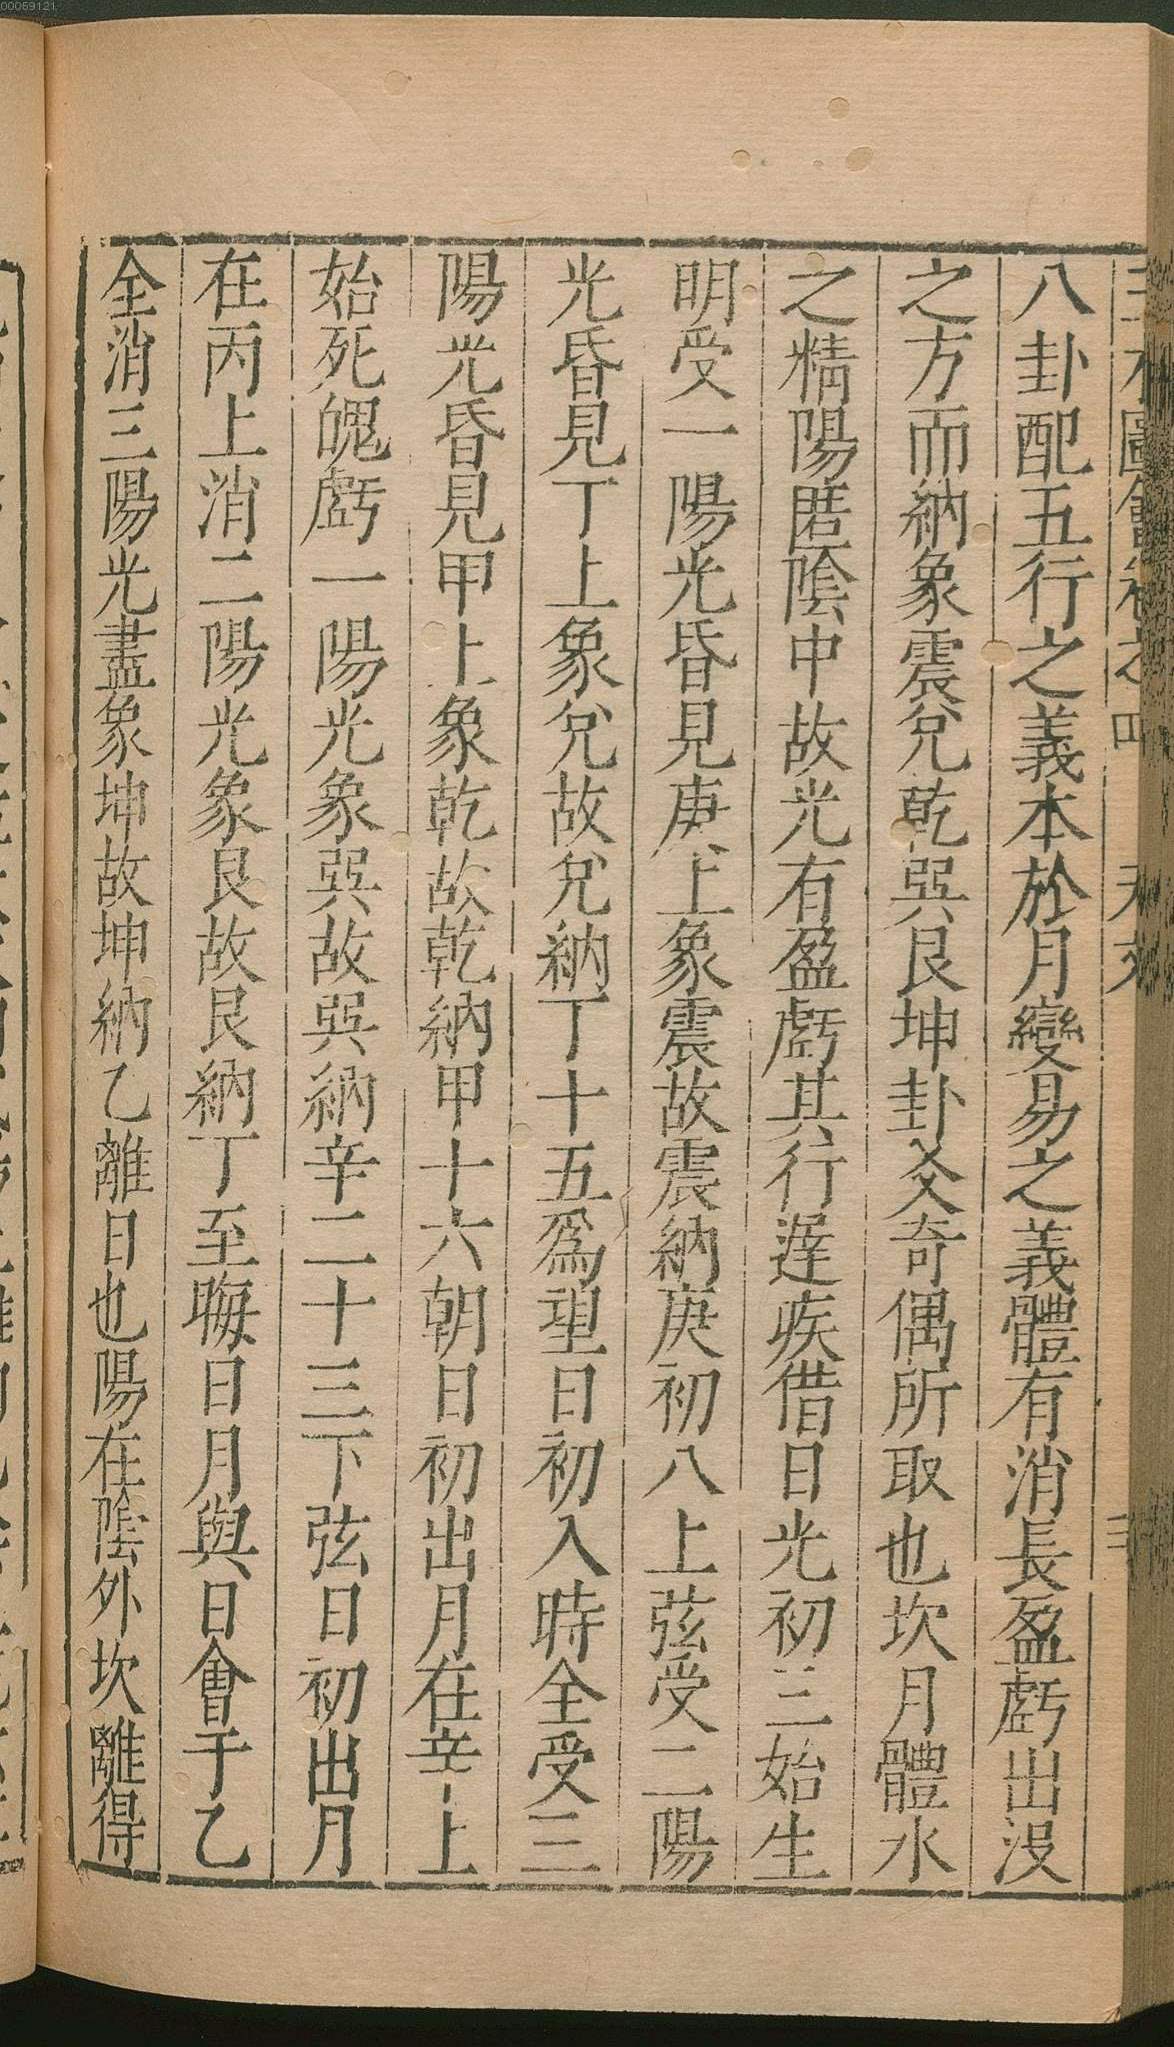 00059121
八卦配五行之義本於月變易之義體有消長盈虧出没
之方而納象震兌乾巽艮坤卦爻奇偶所取也坎月體水
之精陽匿陰中故光有盈虧其行遲疾借日光初三始生
明受一陽光昏見庚上象震故震納庚初八上弦受二陽
光昏見丁上象兌故兌納丁十五爲望日初入時全受三
陽光昏見甲上象乾故乾納甲十六朝日初出月在辛上
始死魄虧一陽光象巽故巽納辛二十三下弦日初出月
在丙上消二陽光象艮故艮納丁至晦日月與日會于乙
全消三陽光盡象坤故坤納乙離日也陽在陰外坎離得